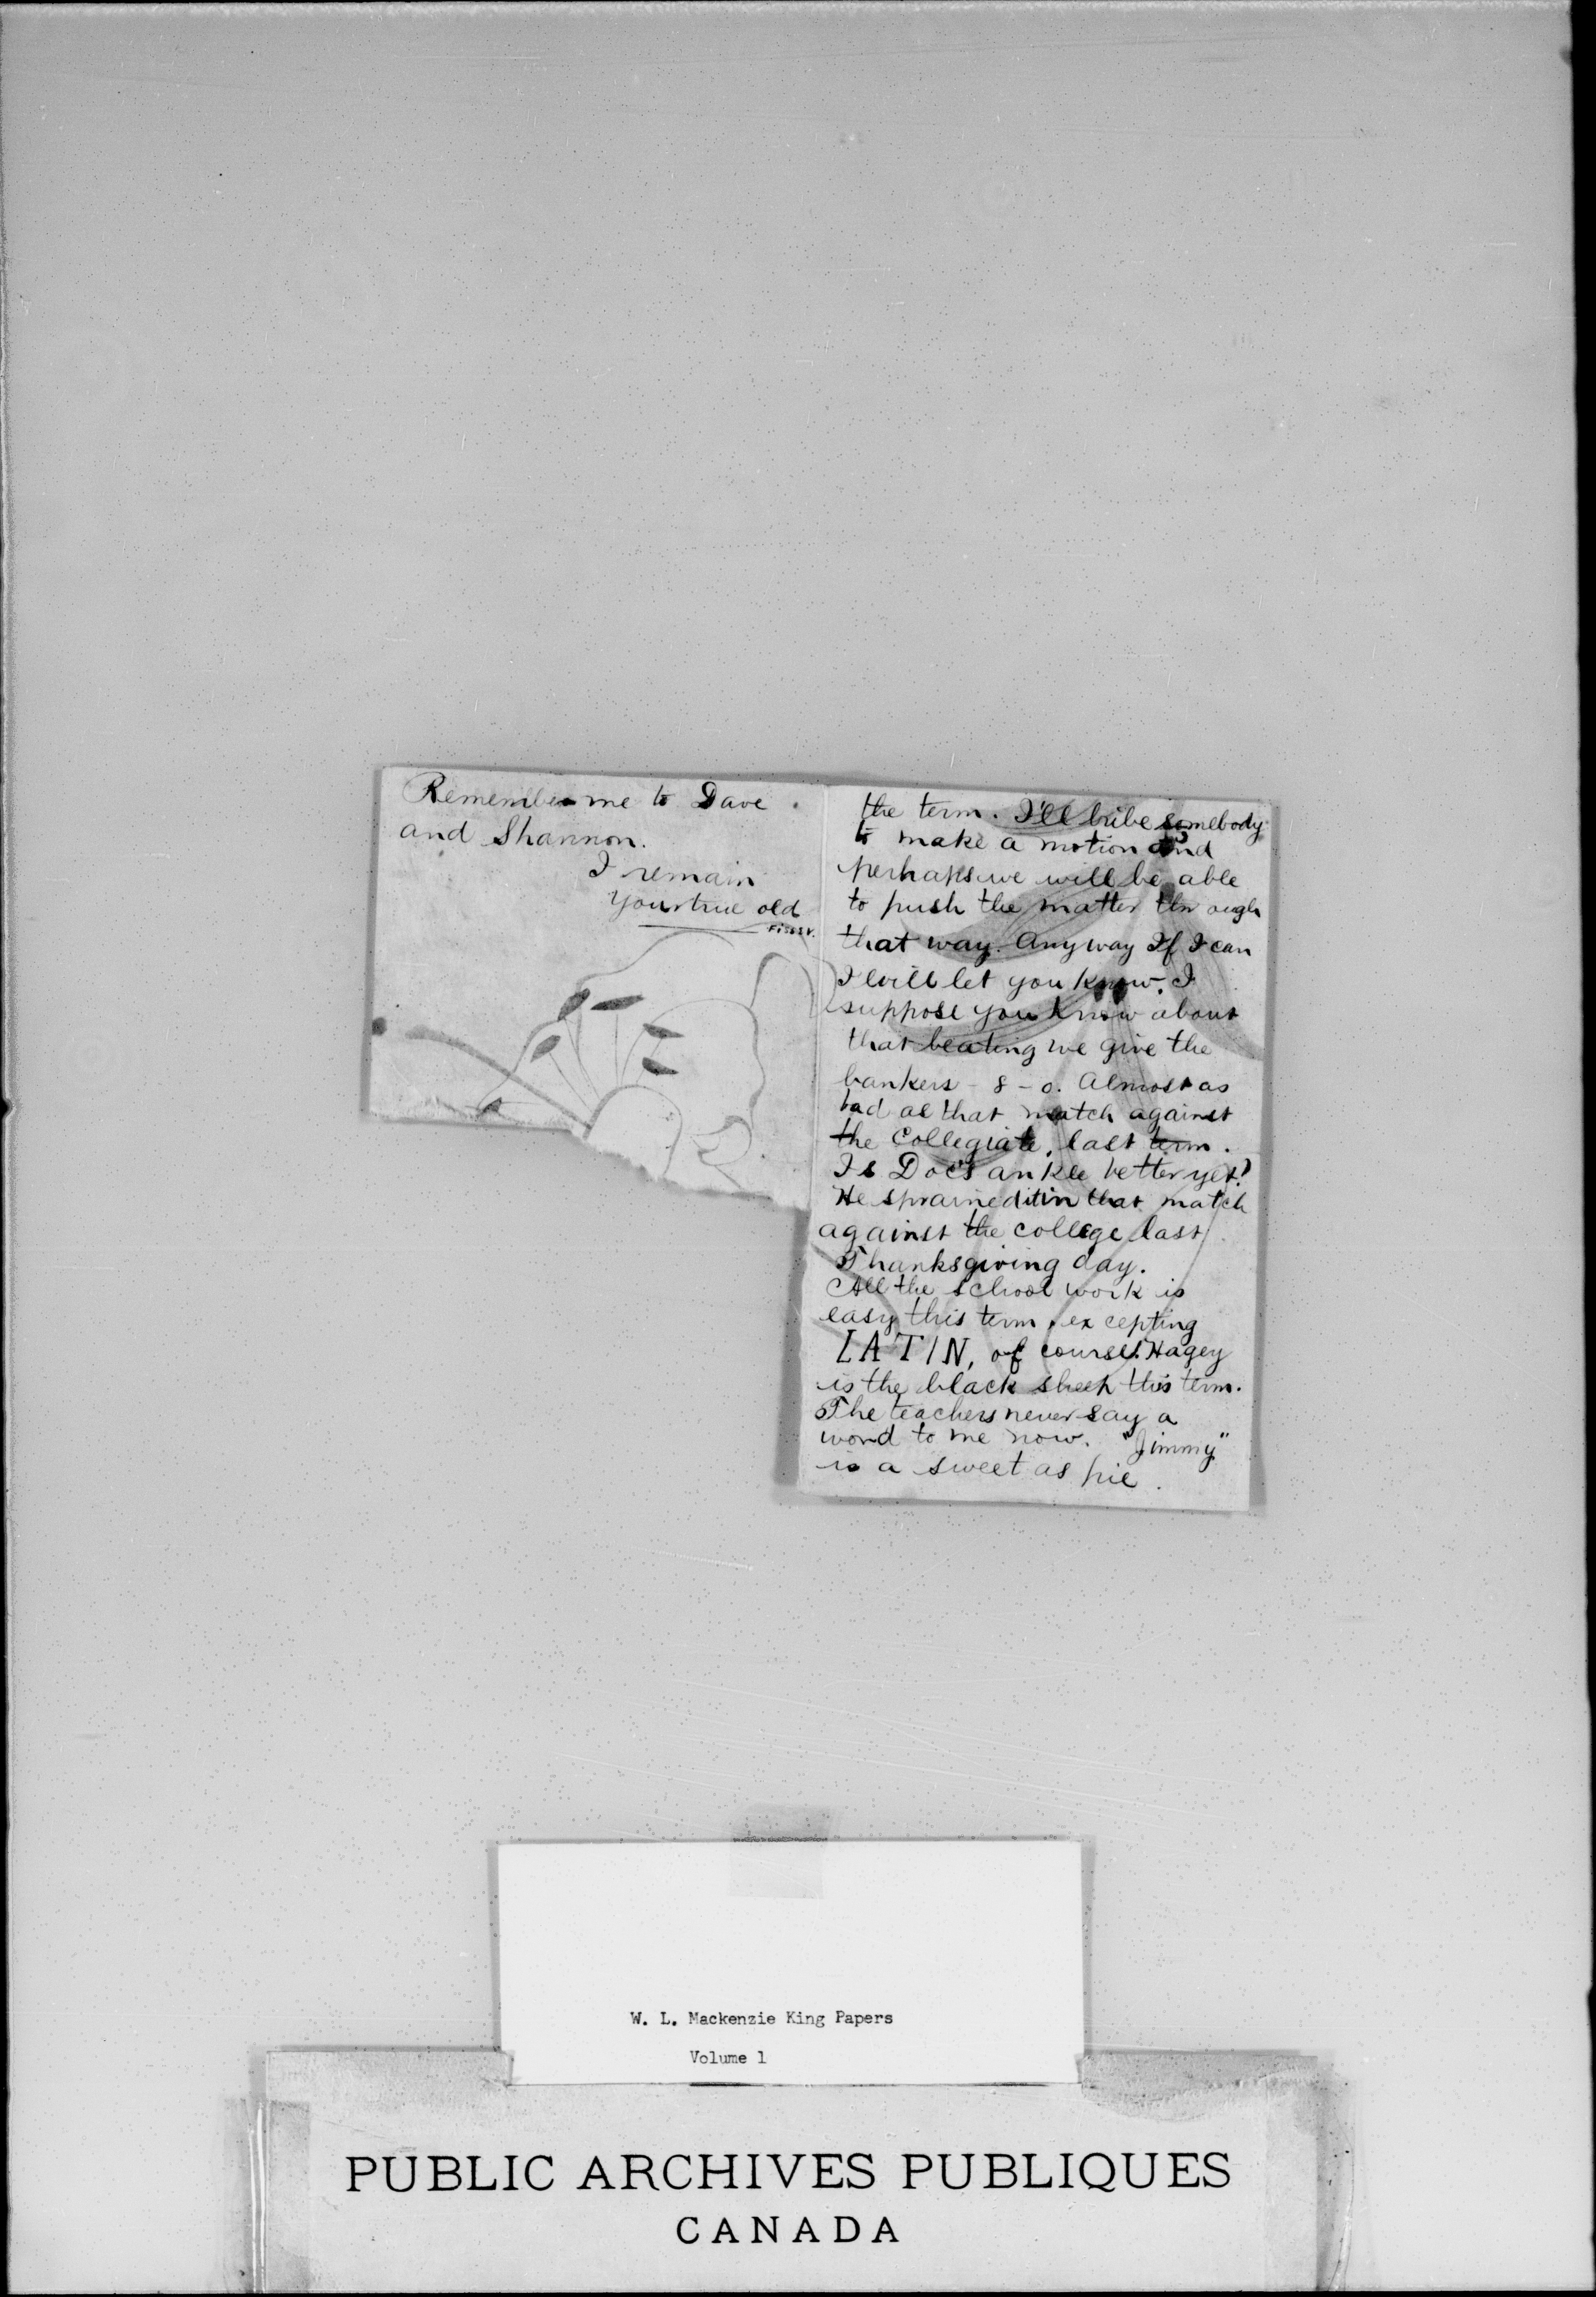 Remember me to Dave
and Shannon.
I remain
your true old
the term. I'll bribe somebody
to make a motion and
perhaps we will be able
to push the matter through
that way. Anyway If I can
I will let you know. I
suppose you know about
that beating we give the
bankers - 8 - 0. Almost as
bad as that match against
the Collegiate, last term.
Is Doc's ankle better yet?
He sprained it in that match
against the college last
Thanksgiving day.
All the school work is
easy this term, excepting
LATIN, of course. Hagey
is the black sheep this term.
The teachers never say a
word to me now. "Jimmy"
is a sweet as pie.
W. L. Mackenzie King Papers
Volume 1
PUBLIC ARCHIVES PUBLIQUES
CANADA